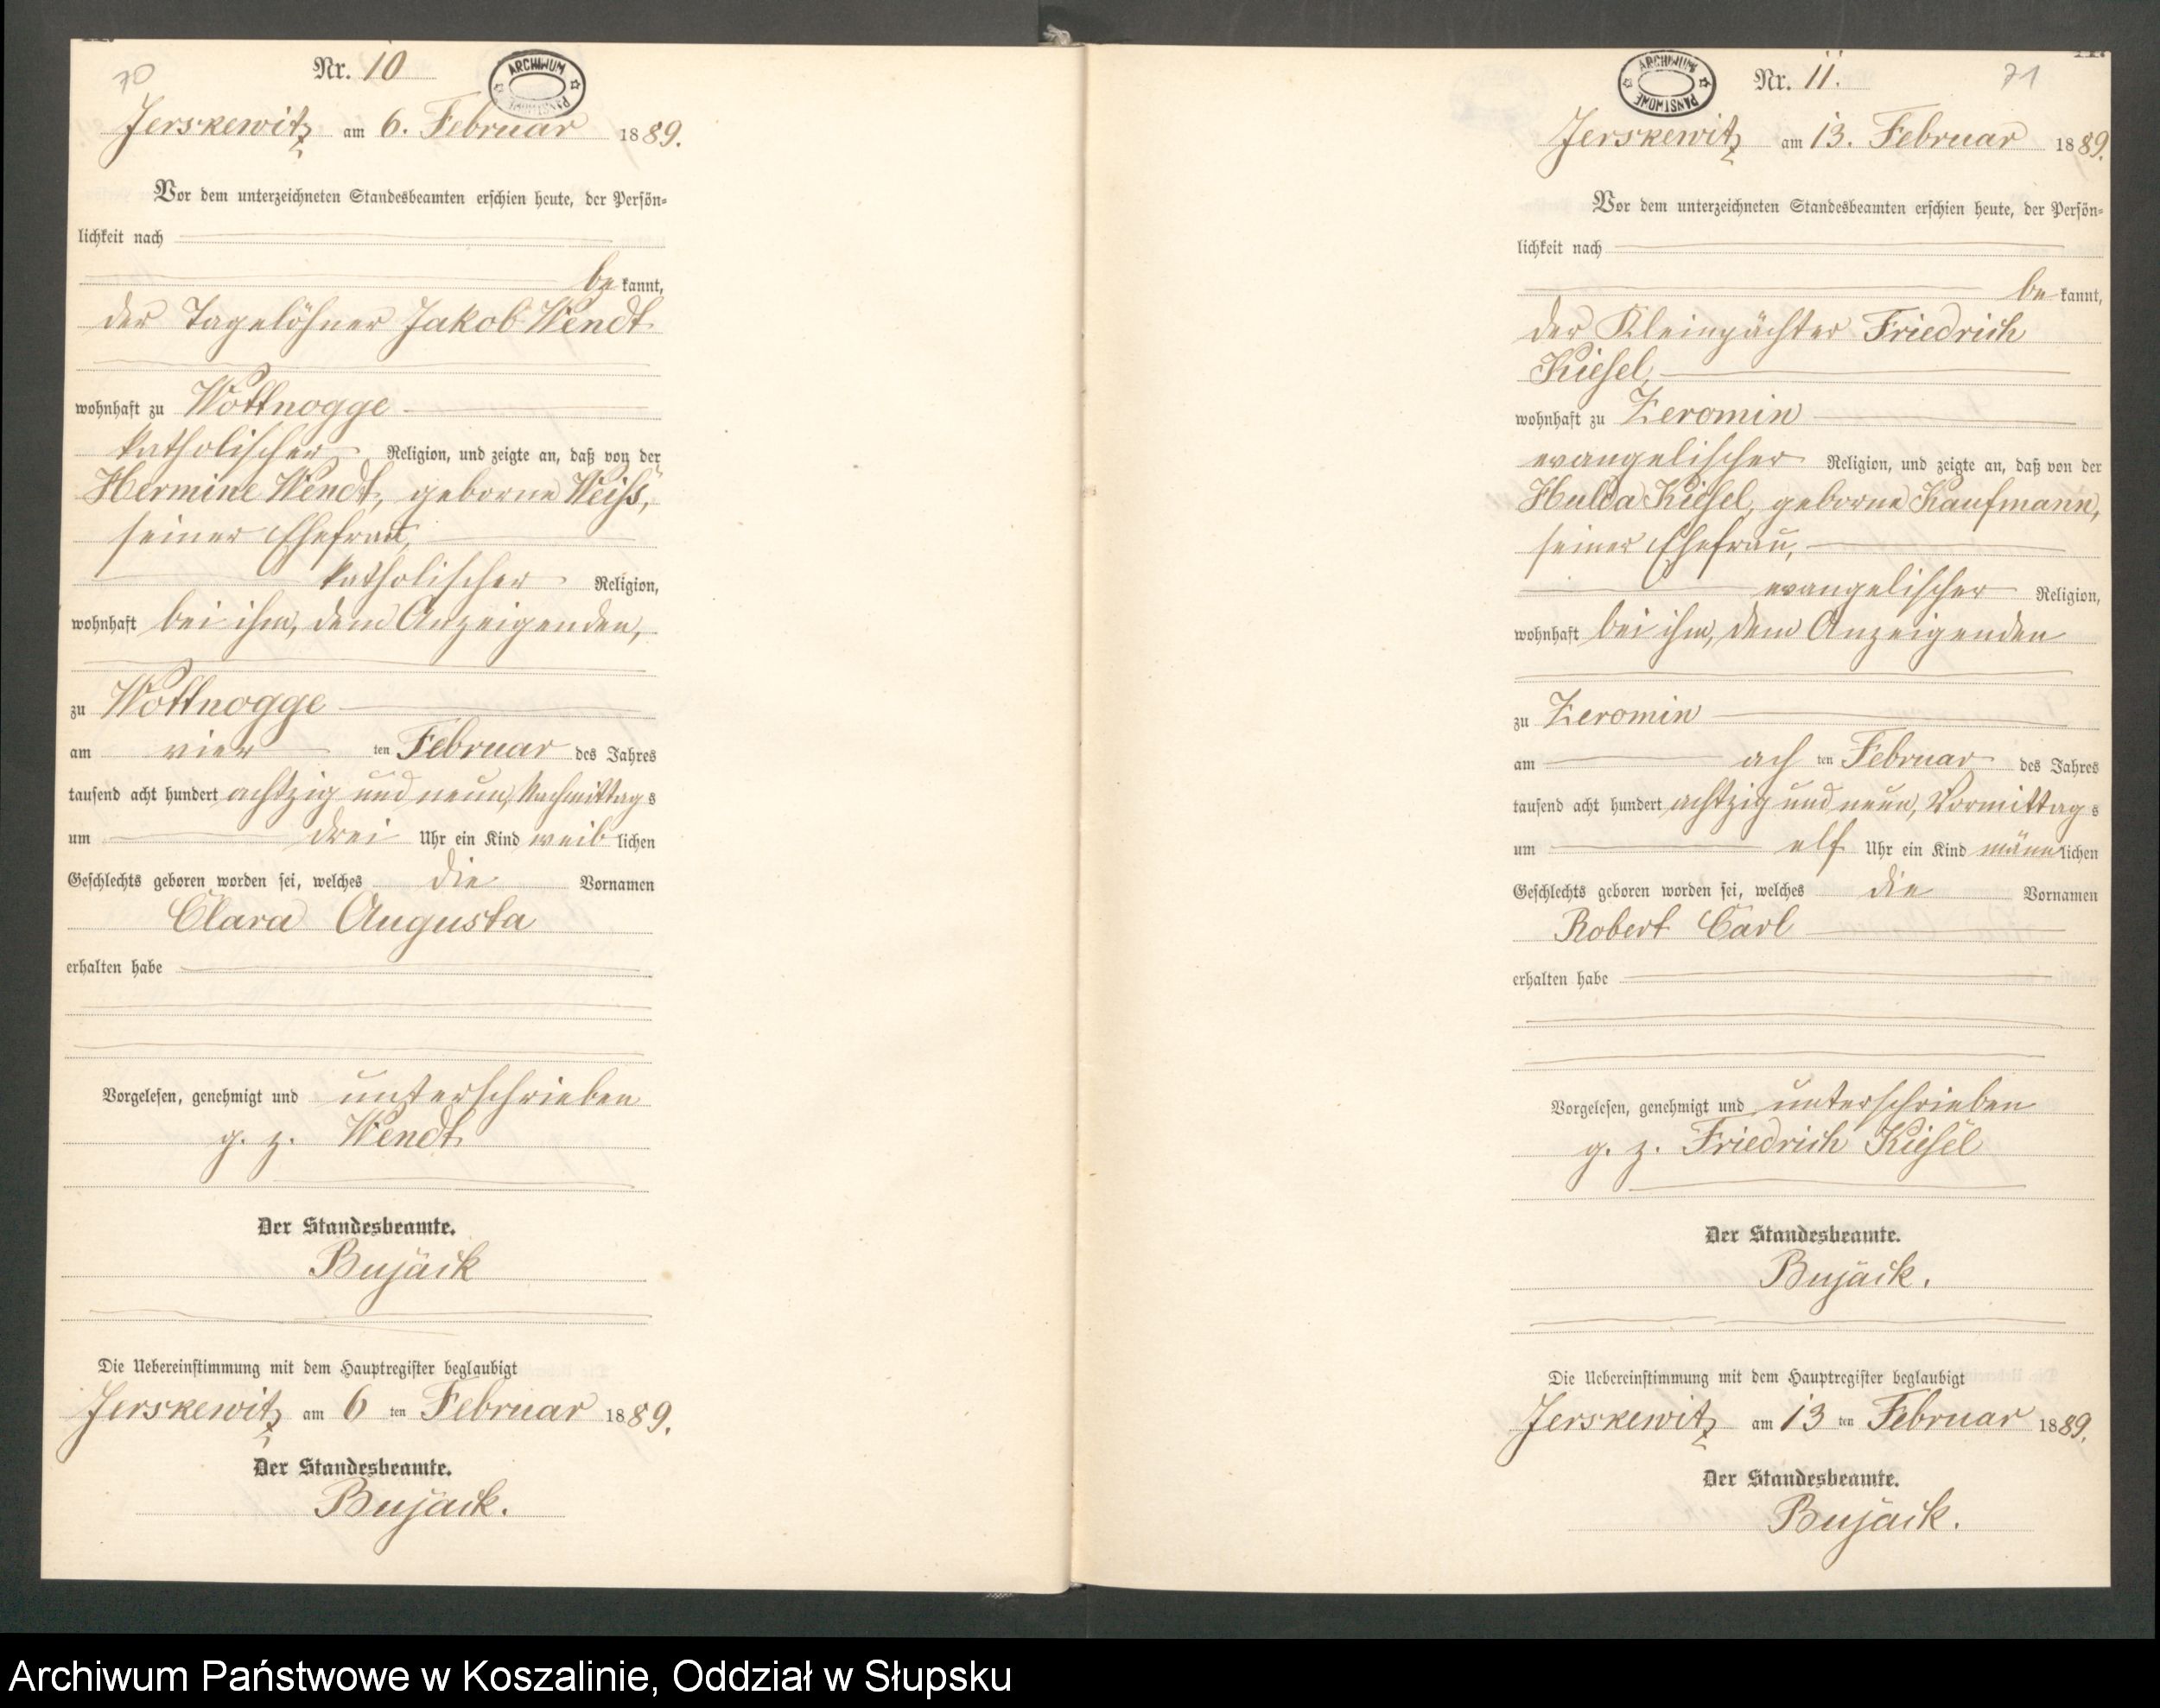 70
Nr. 10
ARCHIWUM PAŃSTWOWE
Jerskewitz am 6. Februar 1889.
Vor dem unterzeichneten Standesbeamten erschien heute, der Persön-
lichkeit nach
be kannt,
der Tagelöhner Jakob Wendt
wohnhaft zu Wottnogge
katholischer Religion, und zeigte an, daß von der
Hermine Wendt, geborne Weiß,
seiner Ehefrau,
katholischer Religion,
wohnhaft bei ihm, dem Anzeigenden,
zu Wottnogge
am vier ten Februar des Jahres
tausend acht hundert achtzig und neun, Nachmittag s
um drei Uhr ein Kind weib lichen
Geschlechts geboren worden sei, welches die Vornamen
Clara Augusta
erhalten habe
Vorgelesen, genehmigt und unterschrieben
g. z. Wendt
Der Standesbeamte.
Bujack
Die Uebereinstimmung mit dem Hauptregister beglaubigt
Jerskewitz am 6 ten Februar 1889.
Der Standesbeamte.
Bujack.
ARCHIWUM PAŃSTWOWE
Nr. 11.
71
Jerskewitz am 13. Februar 1889.
Vor dem unterzeichneten Standesbeamten erschien heute, der Persön-
lichkeit nach
be kannt,
der Kleinpächter Friedrich
Kiesel,
wohnhaft zu Zeromin
evangelischer Religion, und zeigte an, daß von der
Hulda Kiesel, geborne Kaufmann,
seiner Ehefrau,
evangelischer Religion,
wohnhaft bei ihm, dem Anzeigenden
zu Zeromin
am ach ten Februar des Jahres
tausend acht hundert achtzig und neun, Vormittag s
um elf Uhr ein Kind männ lichen
Geschlechts geboren worden sei, welches die Vornamen
Robert Carl
erhalten habe
Vorgelesen, genehmigt und unterschrieben
g. z. Friedrich Kiesel
Der Standesbeamte.
Bujack.
Die Uebereinstimmung mit dem Hauptregister beglaubigt
Jerskewitz am 13 ten Februar 1889.
Der Standesbeamte.
Bujack.
Archiwum Państwowe w Koszalinie, Oddział w Słupsku